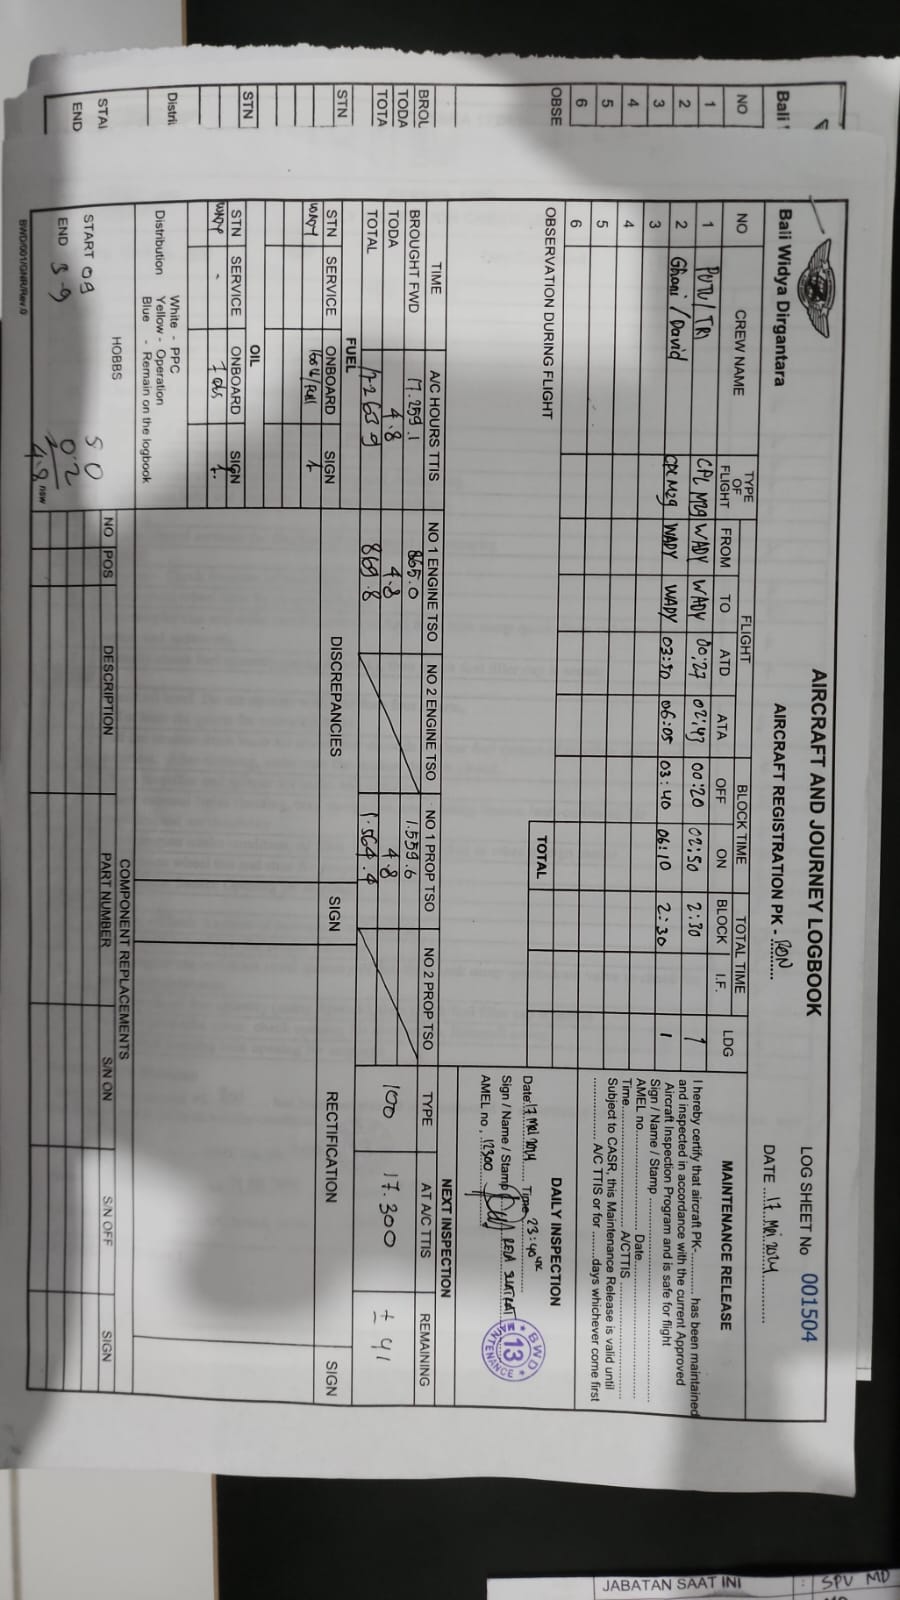 AIRCRAFT AND JOURNEY LOGBOOK
LOG SHEET No 001504
Bali Widya Dirgantara
AIRCRAFT REGISTRATION PK - RON
DATE ...17 Mei 2024...
NO CREW NAME TYPE OF FLIGHT FLIGHT BLOCK TIME TOTAL TIME LDG
FROM TO ATD ATA OFF ON BLOCK I.F.
1 PUTU / TRI CPL M29 WADY WADY 00:27 02:43 00:20 02:50 2:30 1
2 Ghani / David CPL M29 WADY WADY 03:50 06:05 03:40 06:10 2:30 1
3
4
5
6
TOTAL
OBSERVATION DURING FLIGHT
MAINTENANCE RELEASE
I hereby certify that aircraft PK-.......... has been maintained
and inspected in accordance with the current Approved
Aircraft Inspection Program and is safe for flight
Sign / Name / Stamp
AMEL no. Date
Time A/CTTIS
Subject to CASR, this Maintenance Release is valid until
A/C TTIS or for ........days whichever come first
DAILY INSPECTION
Date 17 Mei 2024 Time 23:40
Sign / Name / Stamp
AMEL no. 12300
BWD 13 MAINTENANCE
TIME A/C HOURS TTIS NO 1 ENGINE TSO NO 2 ENGINE TSO NO 1 PROP TSO NO 2 PROP TSO
BROUGHT FWD 17.259.1 865.0 1.559.6
TODA 4.8 4.8 4.8
TOTAL 17263.9 869.8 1.564.4
NEXT INSPECTION
TYPE AT A/C TTIS REMAINING
100 17.300 ± 41
FUEL
STN SERVICE ONBOARD SIGN
WADY Full
OIL
STN SERVICE ONBOARD SIGN
WADY - 7 qts
DISCREPANCIES SIGN RECTIFICATION SIGN
Distribution White - PPC
Yellow - Operation
Blue - Remain on the logbook
HOBBS
START 09
END 3-9
5 0
0.2
4.8
COMPONENT REPLACEMENTS
NO POS DESCRIPTION PART NUMBER S/N ON S/N OFF SIGN
BWD/001/GNR/Rev.0
Bali
NO
1
2
3
4
5
6
OBSE
BROU
TODA
TOTA
STN
STN
Distri
STA
END
JABATAN SAAT INI : SPV MD